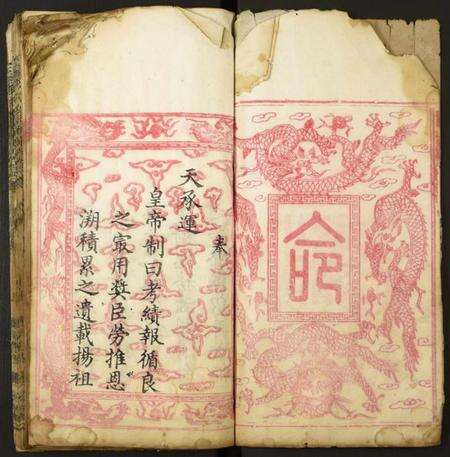 命
奉
天承運
皇帝制曰考績報循良
之㝡用臣勞推恩
溯積累之遺載揚祖